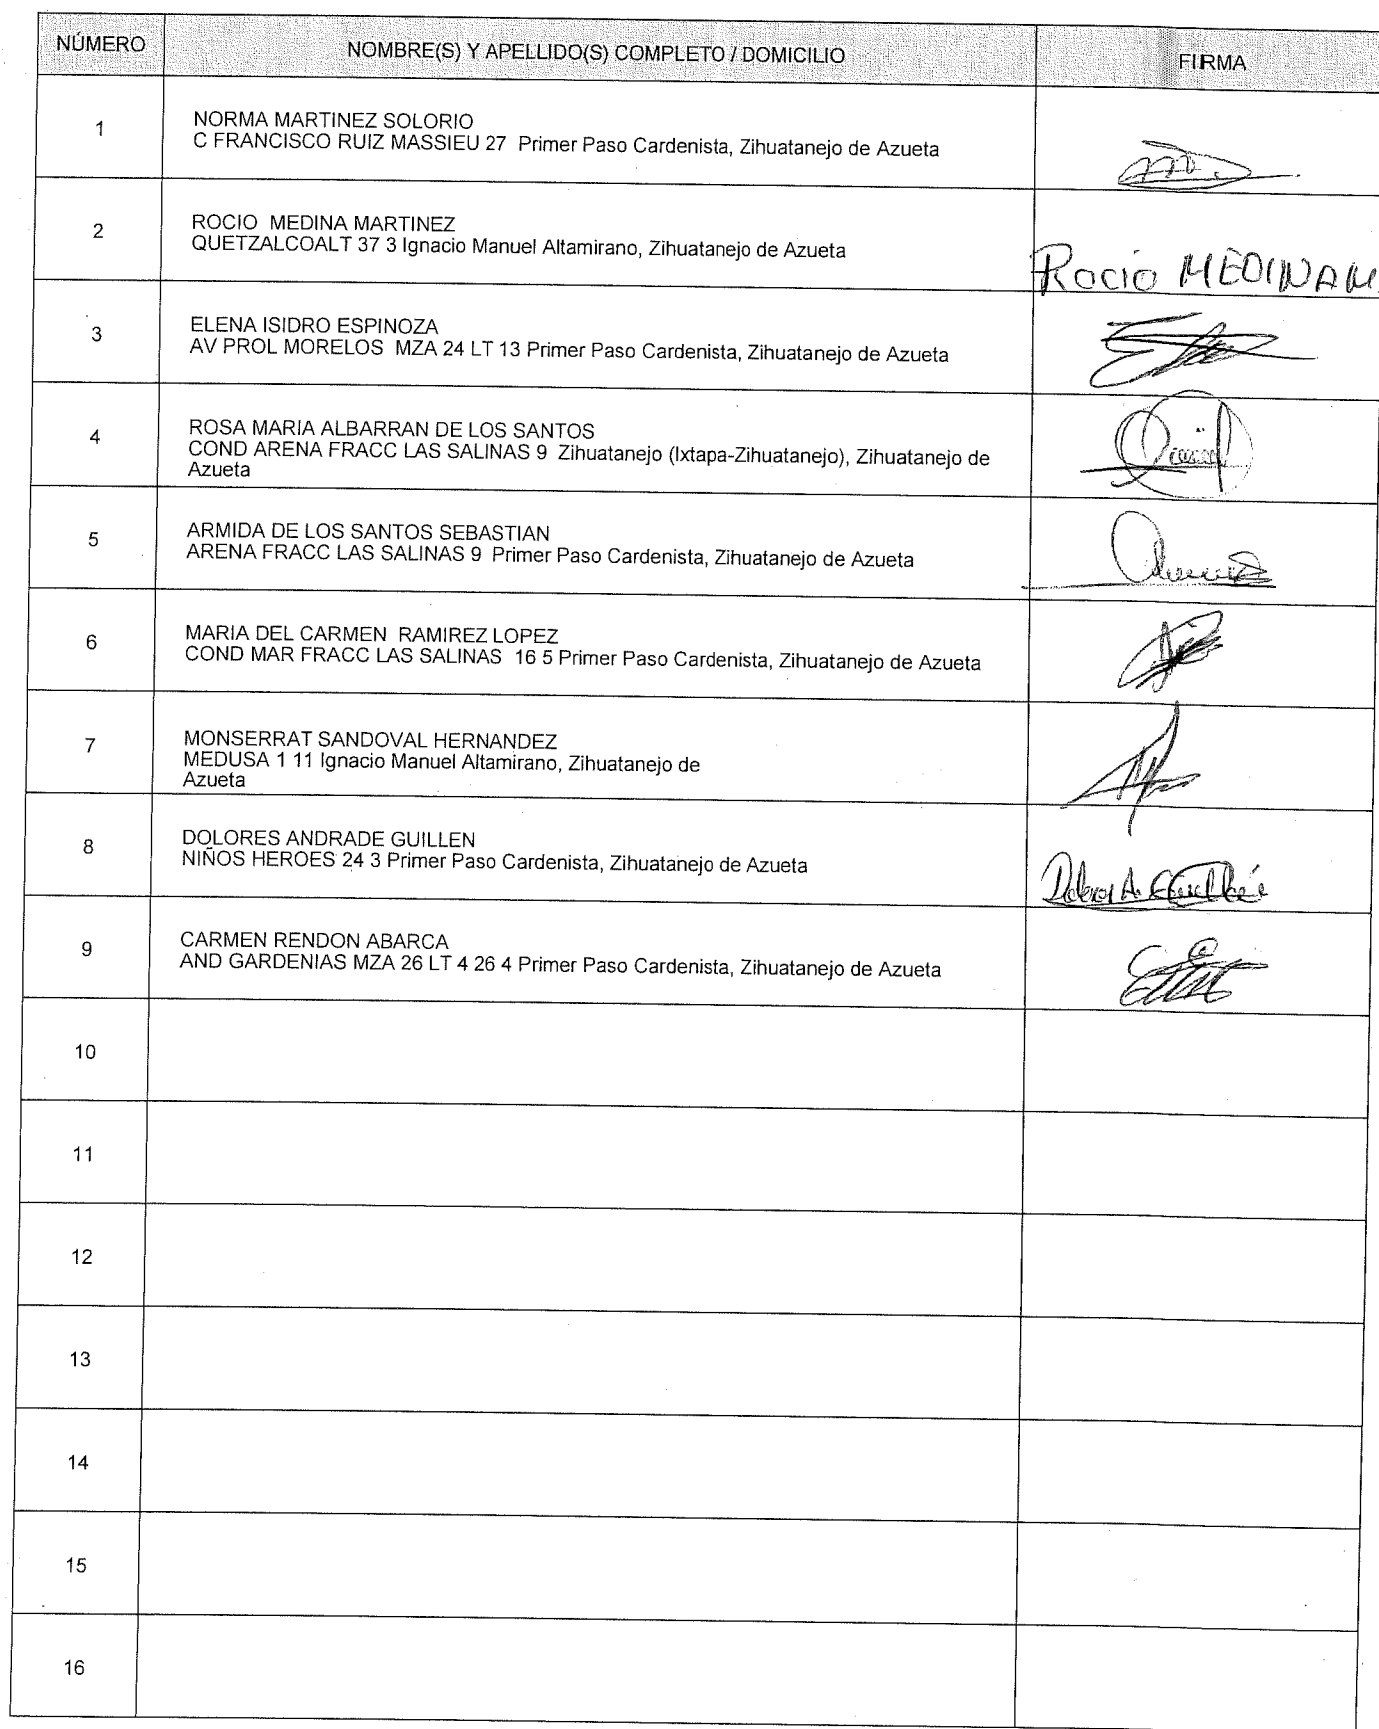 NÚMERO NOMBRE(S) Y APELLIDO(S) COMPLETO / DOMICILIO FIRMA
1 NORMA MARTINEZ SOLORIO
C FRANCISCO RUIZ MASSIEU 27 Primer Paso Cardenista, Zihuatanejo de Azueta
2 ROCIO MEDINA MARTINEZ
QUETZALCOALT 37 3 Ignacio Manuel Altamirano, Zihuatanejo de Azueta
Rocio MEDINA M
3 ELENA ISIDRO ESPINOZA
AV PROL MORELOS MZA 24 LT 13 Primer Paso Cardenista, Zihuatanejo de Azueta
4 ROSA MARIA ALBARRAN DE LOS SANTOS
COND ARENA FRACC LAS SALINAS 9 Zihuatanejo (Ixtapa-Zihuatanejo), Zihuatanejo de
Azueta
5 ARMIDA DE LOS SANTOS SEBASTIAN
ARENA FRACC LAS SALINAS 9 Primer Paso Cardenista, Zihuatanejo de Azueta
6 MARIA DEL CARMEN RAMIREZ LOPEZ
COND MAR FRACC LAS SALINAS 16 5 Primer Paso Cardenista, Zihuatanejo de Azueta
7 MONSERRAT SANDOVAL HERNANDEZ
MEDUSA 1 11 Ignacio Manuel Altamirano, Zihuatanejo de
Azueta
8 DOLORES ANDRADE GUILLEN
NIÑOS HEROES 24 3 Primer Paso Cardenista, Zihuatanejo de Azueta
9 CARMEN RENDON ABARCA
AND GARDENIAS MZA 26 LT 4 26 4 Primer Paso Cardenista, Zihuatanejo de Azueta
10
11
12
13
14
15
16